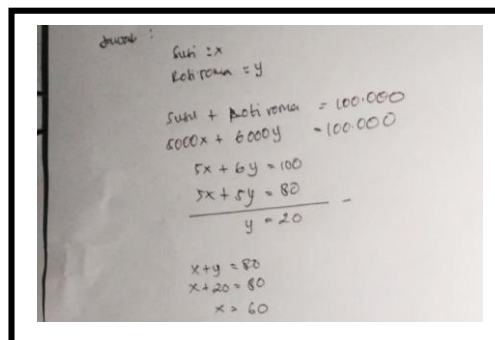 Jawab :
Susu = x
Roti roma = y
Susu + Roti roma = 100.000
5000x + 6000y = 100.000
5x + 6y = 100
5x + 5y = 80
y = 20
x + y = 80
x + 20 = 80
x = 60